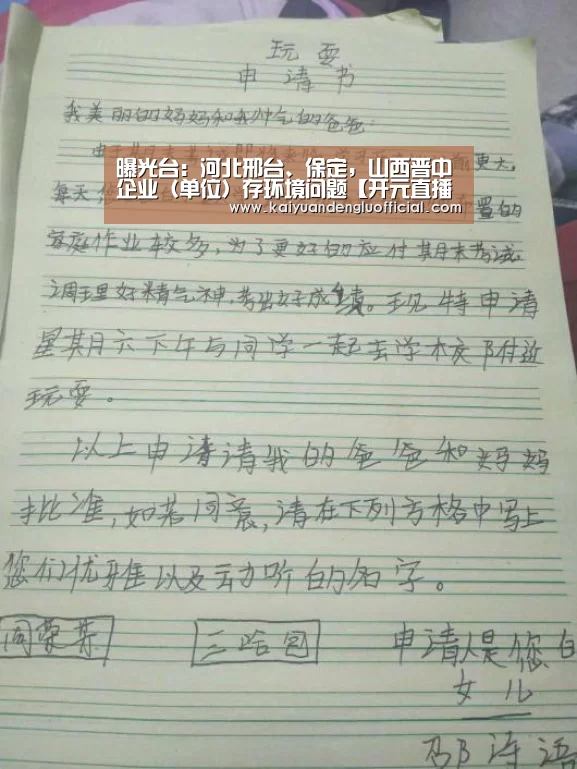 玩耍
申请书
我美丽的妈妈和我帅气的爸爸:
由于期末考试即将来临
更大,
每天
曝光台：河北邢台、保定，山西晋中
企业（单位）存环境问题【开元直播
www.kaiyuandengluofficial.com
置的
家庭作业较多,为了更好的应付期末考试,
调理好精气神,考出好成绩。现特申请
星期六下午与同学一起去学校附近
玩耍。
以上申请请我的爸爸和妈妈
批准,如若同意,请在下列方格中写上
您们优雅以及动听的名字。
申请人是您
女儿